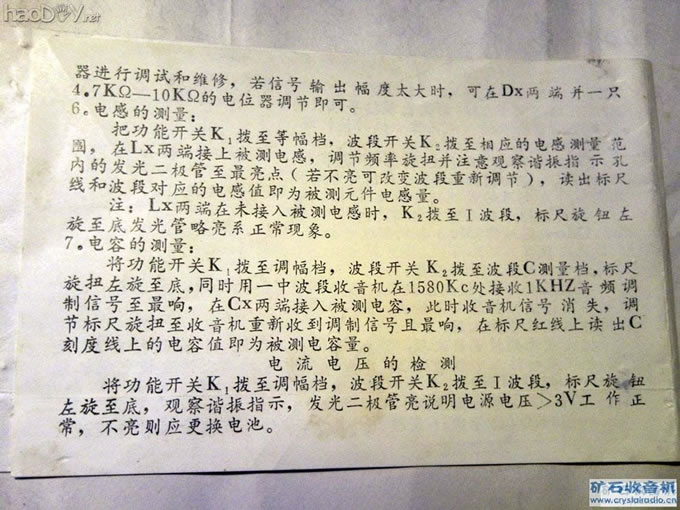 haoDIY.net
器进行调试和维修，若信号输出幅度太大时，可在Dx两端并一只
4.7KΩ—10KΩ的电位器调节即可。
6.电感的测量：
把功能开关K₁拨至等幅档，波段开关K₂拨至相应的电感测量范
围，在Lx两端接上被测电感，调节频率旋扭并注意观察谐振指示孔
内的发光二极管至最亮点（若不亮可改变波段重新调节），读出标尺
线和波段对应的电感值即为被测元件电感量。
注：Lx两端在未接入被测电感时，K₂拨至I波段，标尺旋钮左
旋至底发光管略亮系正常现象。
7.电容的测量：
将功能开关K₁拨至调幅档，波段开关K₂拨至波段C测量档，标尺
旋扭左旋至底，同时用一中波段收音机在1580Kc处接收1KHZ音频调
制信号至最响，在Cx两端接入被测电容，此时收音机信号消失，调
节标尺旋扭至收音机重新收到调制信号且最响，在标尺红线上读出C
刻度线上的电容值即为被测电容量。
电流电压的检测
将功能开关K₁拨至调幅档，波段开关K₂拨至I波段，标尺旋钮
左旋至底，观察谐振指示，发光二极管亮说明电源电压＞3V工作正
常，不亮则应更换电池。
矿石收音机
www.crystalradio.cn